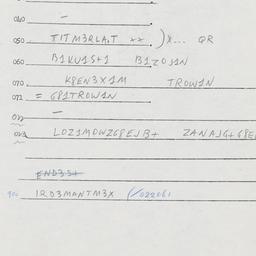 040 —
050 TITM3RLA,T ** )*... QR
060 B1KU1S+1 B1ZOJ1N
070 K8EN3X1M TROW1N
071 = G81TROW1N
072 —
073 LOZ1MOWZG8EJB+ ZANAJG+G8E
END3S+
900 1RD3MANTM3X (/022081